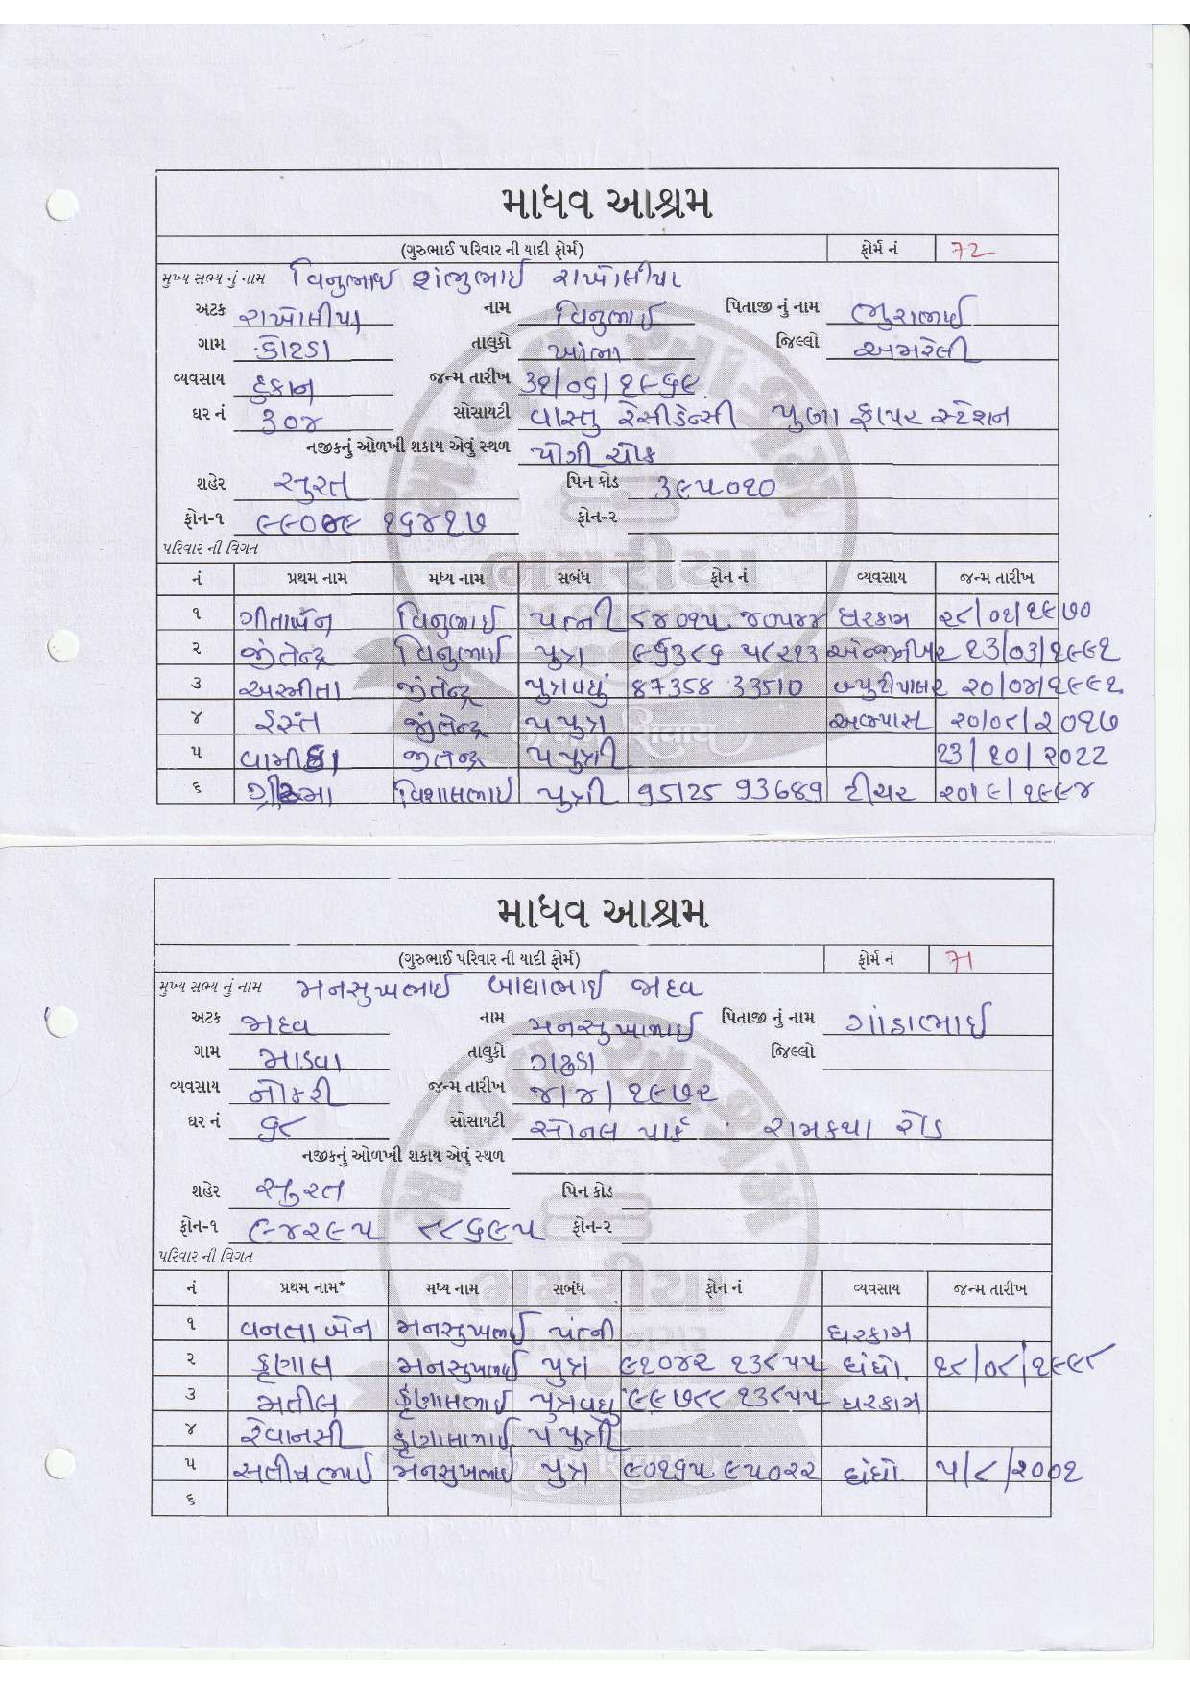 માધવ આશ્રમ
(ગુરુભાઈ પરિવાર ની યાદી ફોર્મ) ફોર્મ નં 72
મુખ્ય સભ્ય નું નામ વિનુભાઈ શંભુભાઈ રાખોલીયા
અટક રાખોલીયા નામ વિનુભાઈ પિતાજી નું નામ ભુરાભાઈ
ગામ કોટડા તાલુકો ખાંભા જિલ્લો અમરેલી
વ્યવસાય દુકાન જન્મ તારીખ ૩૧/૦૬/૧૯૬૯
ઘર નં ૩૦૪ સોસાયટી વાસ્તુ રેસીડેન્સી પુણા ફાયર સ્ટેશન
નજીકનું ઓળખી શકાય એવું સ્થળ યોગી ચોક
શહેર સુરત પિન કોડ ૩૯૫૦૧૦
ફોન-૧ ૧૬૪૧૭ ફોન-૨
પરિવાર ની વિગત
નં પ્રથમ નામ મધ્ય નામ સબંધ ફોન નં વ્યવસાય જન્મ તારીખ
૧ ગીતાબેન વિનુભાઈ પત્ની ઘરકામ
૨ જીતેન્દ્ર વિનુભાઈ પુત્ર ૯૬૩૮૬ ૫૮૨૧૩ એન્જીનીયર ૧૩/૦૩/૧૯૯૧
૩ અસ્મીતા જીતેન્દ્ર પુત્રવધુ 87358 33510 બ્યુટીપાલર ૨૦/૦૪/૧૯૯૧
૪ જીતેન્દ્ર પપુત્ર અભ્યાસ ૨૦/૦૮/૨૦૧૭
૫ જીતેન્દ્ર પપુત્રી ૨3/૧0/૨022
૬ વિશાલભાઈ પુત્રી 95125 93689 ટીચર
માધવ આશ્રમ
(ગુરુભાઈ પરિવાર ની યાદી ફોર્મ) ફોર્મ નં 71
મુખ્ય સભ્ય નું નામ મનસુખભાઈ બાઘાભાઈ જાદવ
અટક જાદવ નામ મનસુખભાઈ પિતાજી નું નામ ગાંડાભાઈ
ગામ માડવા તાલુકો ગઢડા જિલ્લો
વ્યવસાય નોકરી જન્મ તારીખ ૪/૪/૧૯૭૨
ઘર નં ૧૮ સોસાયટી સોનલ પાર્ક રામકથા રોડ
નજીકનું ઓળખી શકાય એવું સ્થળ
શહેર સુરત પિન કોડ
ફોન-૧ ૯૪૨૯૫ ૮૮૬૯૫ ફોન-૨
પરિવાર ની વિગત
નં પ્રથમ નામ* મધ્ય નામ સબંધ ફોન નં વ્યવસાય જન્મ તારીખ
૧ વનતાબેન મનસુખભાઈ પત્ની ઘરકામ
૨ કૃણાલ મનસુખભાઈ પુત્ર ૯૧૦૪૨ ૧૩૮૫૫ ધંધો. ૧૮/૦૮/૧૯૯૮
૩ કૃણાલભાઈ પુત્રવધુ ૯૯૭૮૮ ૧૩૮૫૫ ઘરકામ
૪ રેવાનસી કૃણાલભાઈ પપુત્રી
૫ મનસુખભાઈ પુત્ર ૯૦૧૬૫ ૯૫૦૨૨ ધંધો ૫/૮/૨૦૦૧
૬